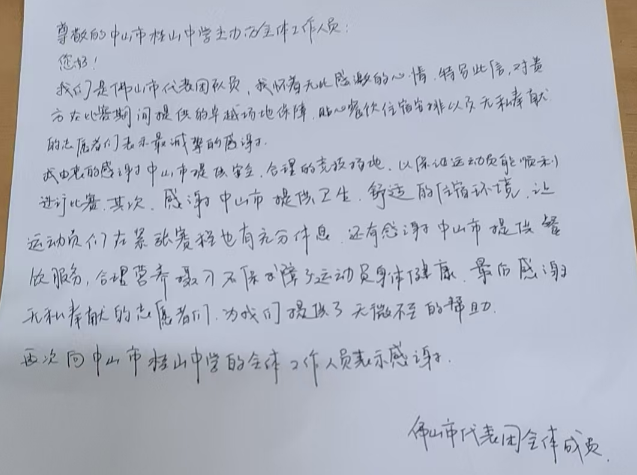 尊敬的中山市桂山中学主办方全体工作人员：
您好！
我们是佛山市代表团队员，我怀着无比感激的心情，特写此信，对贵
方在比赛期间提供的卓越场地保障，贴心餐饮住宿安排以及无私奉献
的志愿者们表示最诚挚的感谢。
我由衷的感谢中山市提供安全、合理的竞技场地，以保证运动员能顺利
进行比赛，其次，感谢中山市提供卫生，舒适的住宿环境，让
运动员们在紧张赛程也有充分休息，还有感谢中山市提供餐
饮服务，合理营养摄入保障了运动员身体健康，最后感谢
无私奉献的志愿者们，为我们提供了无微不至的帮助。
再次向中山市桂山中学的全体工作人员表示感谢。
佛山市代表团全体成员。